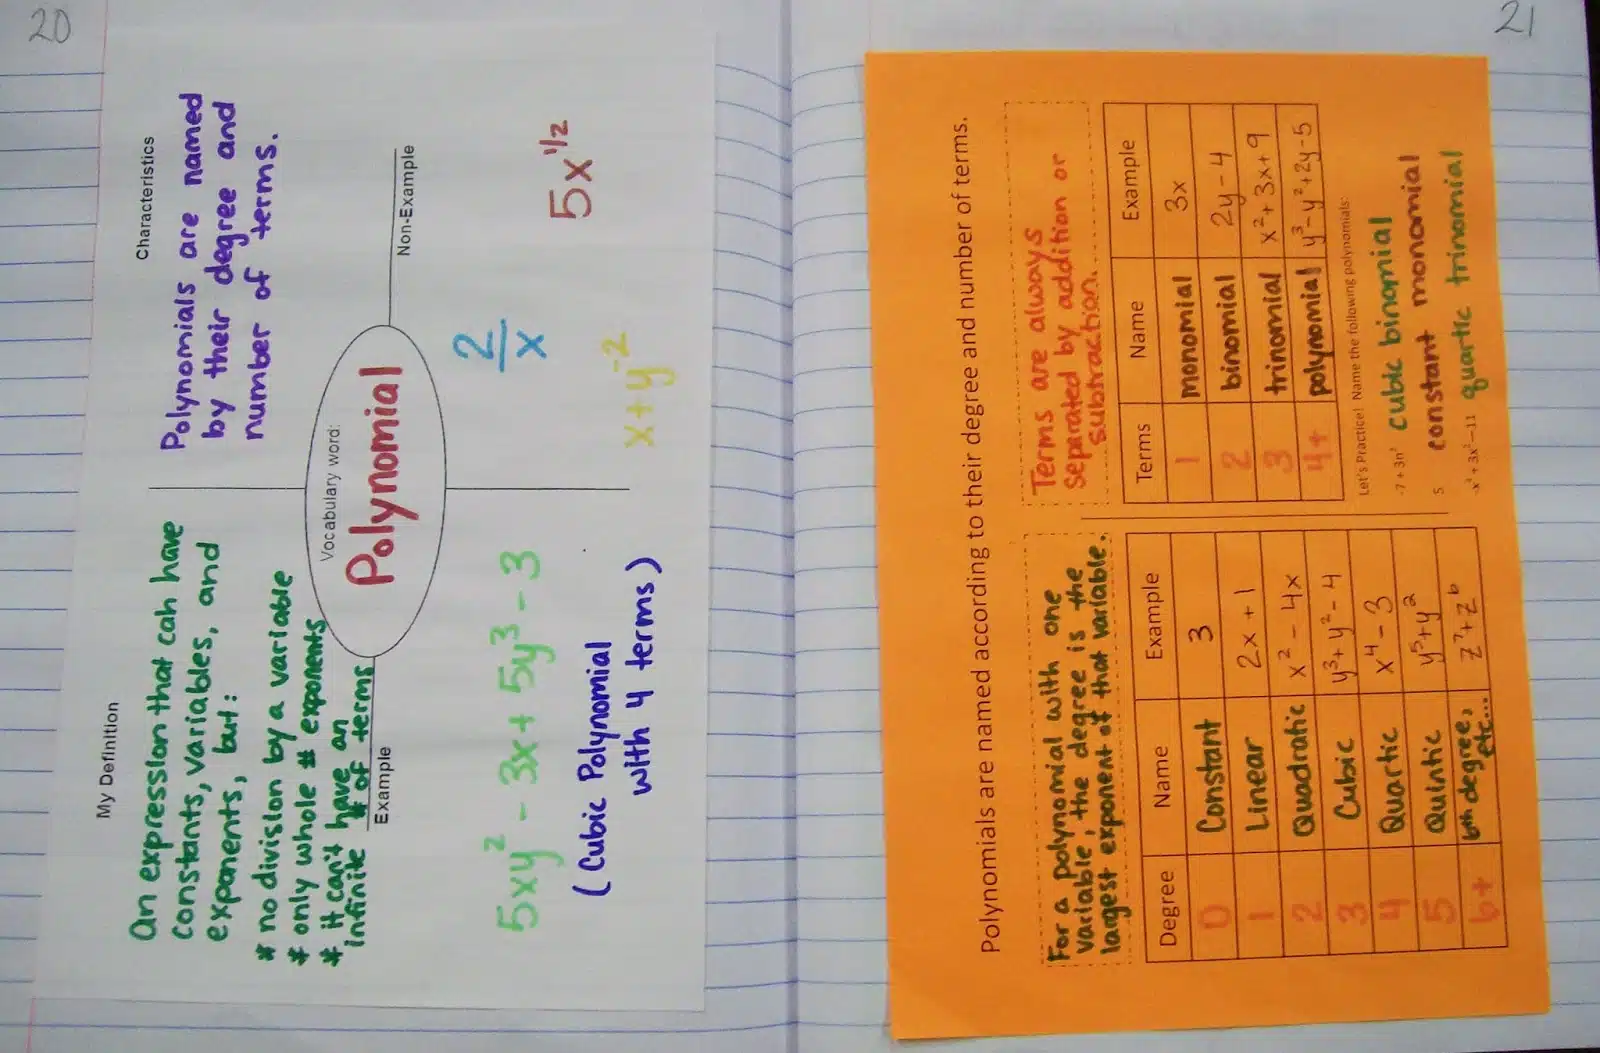 20
My Definition
An expression that can have
constants, variables, and
exponents, but:
* no division by a variable
* only whole # exponents
* it can't have an
infinite # of terms
Characteristics
Polynomials are named
by their degree and
number of terms.
Vocabulary word:
Polynomial
Example
5xy² - 3x + 5y³ - 3
(Cubic Polynomial
with 4 terms)
Non-Example
2/x
5x^1/2
x+y^-2
21
Polynomials are named according to their degree and number of terms.
For a polynomial with one
variable, the degree is the
largest exponent of that variable.
Degree Name Example
0 Constant 3
1 Linear 2x + 1
2 Quadratic x² - 4x
3 Cubic y³ + y² - 4
4 Quartic x⁴ - 3
5 Quintic y⁵ + y²
6+ 6th degree, etc... z⁷ + z⁶
Terms are always
separated by addition or
subtraction.
Terms Name Example
1 monomial 3x
2 binomial 2y - 4
3 trinomial x² + 3x + 9
4+ polynomial y³ - y² + 2y - 5
Let's Practice! Name the following polynomials:
-7 + 3n³ cubic binomial
5 constant monomial
-x⁴ + 3x² - 11 quartic trinomial